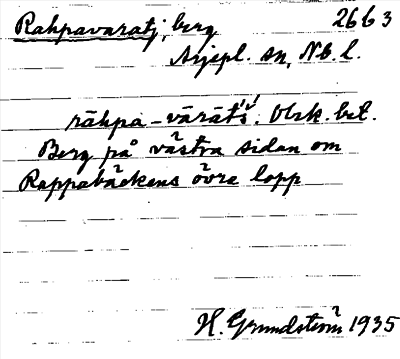 Rahpavaratj, berg 2663
Arjepl. sn, Nb. l.
rāhpa-vārāt́š́. Obek. bet.
Berg på västra sidan om
Rappabäckens övre lopp
H. Grundström 1935